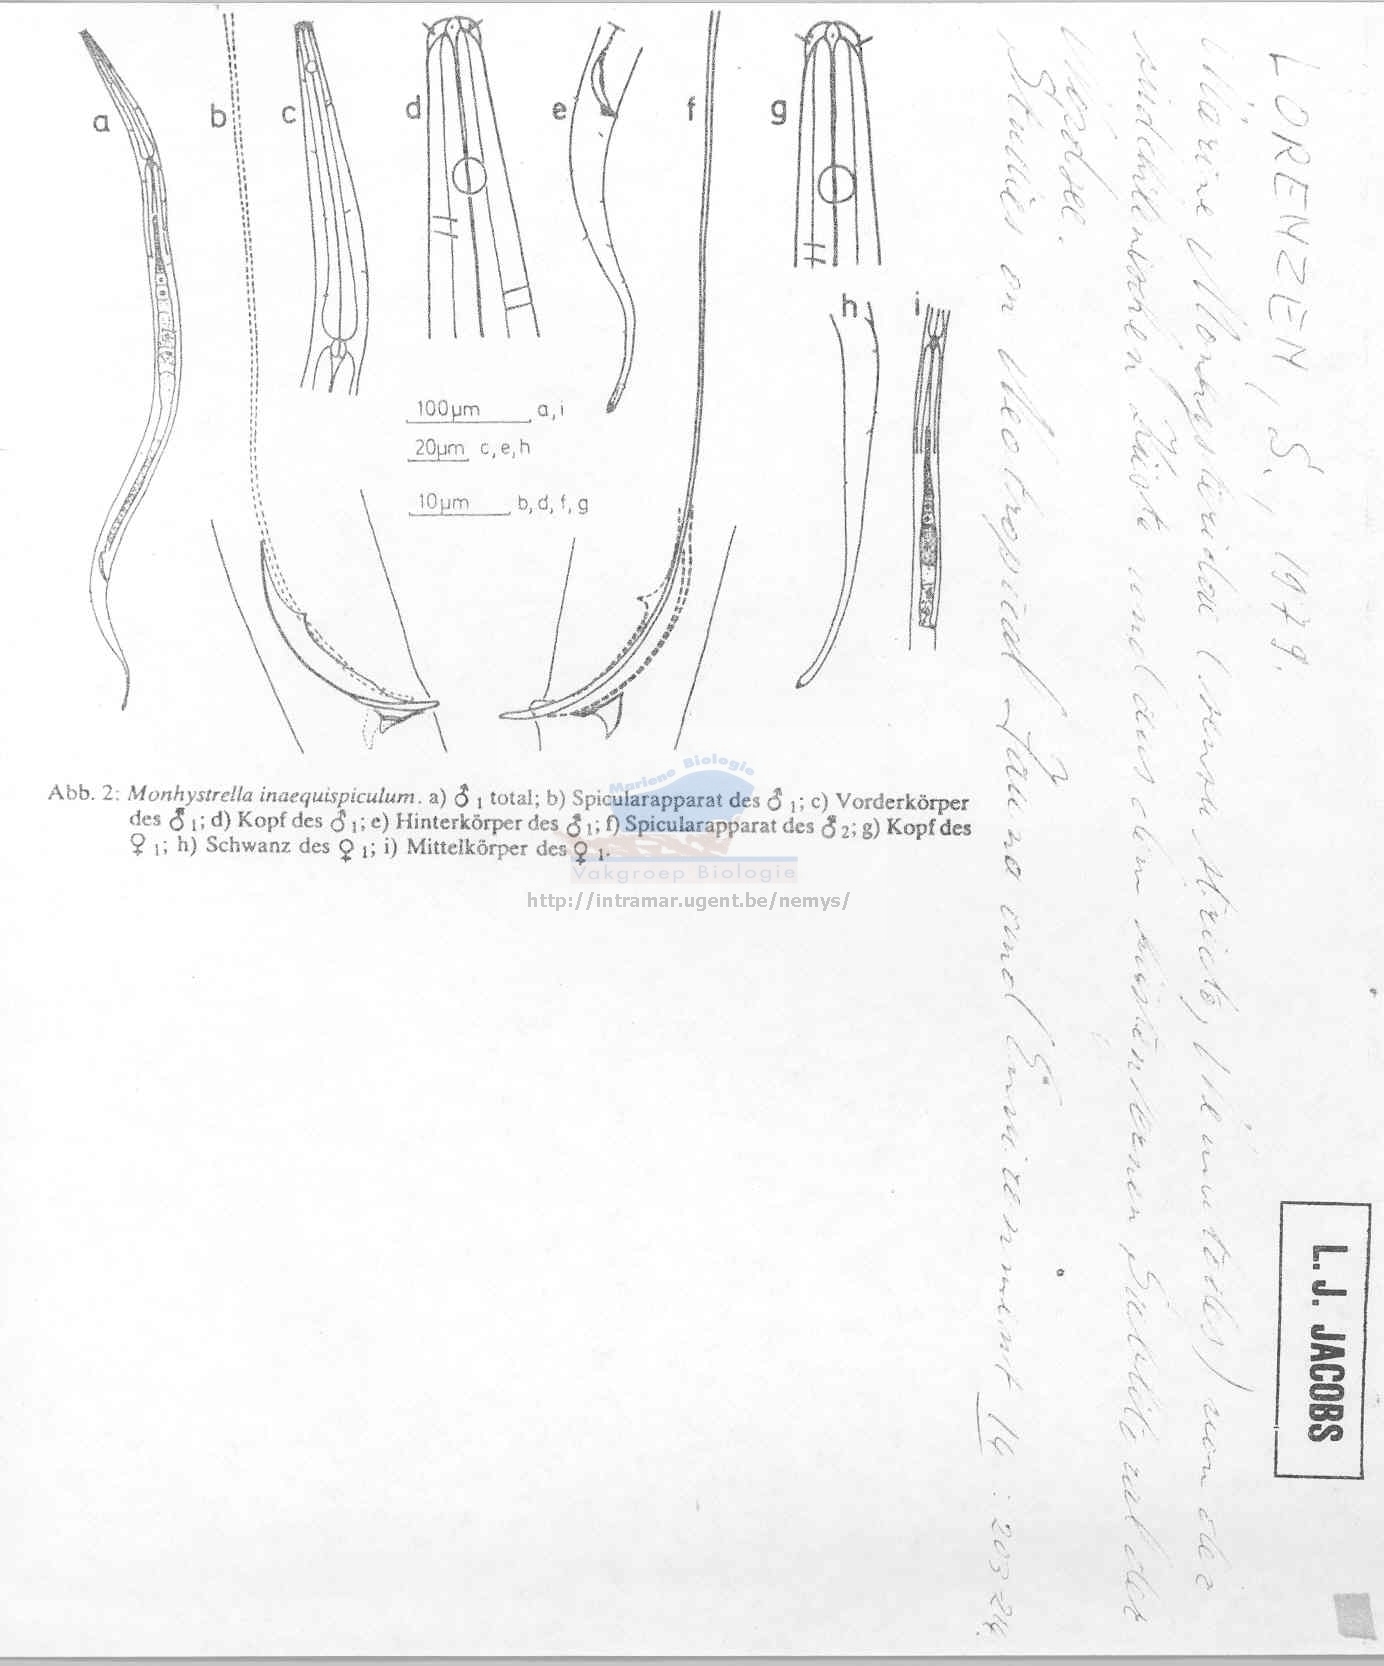 a
b
c
d
e
f
g
h
i
100µm a,i
20µm c,e,h
10µm b,d,f,g
Abb. 2: Monhystrella inaequispiculum. a) ♂ 1 total; b) Spicularapparat des ♂ 1; c) Vorderkörper
des ♂ 1; d) Kopf des ♂ 1; e) Hinterkörper des ♂ 1; f) Spicularapparat des ♂ 2; g) Kopf des
♀ 1; h) Schwanz des ♀ 1; i) Mittelkörper des ♀ 1.
Mariene Biologie
Vakgroep Biologie
http://intramar.ugent.be/nemys/
LORENZEN, S., 1979.
Marine Monhysteridae (sensu stricto, Nematodes) von der
südchilenischen Küste und aus dem küstenfernen Sublitoral der
Nordsee.
Studies on Neotropical Fauna and Environment 14: 203-
L. J. JACOBS